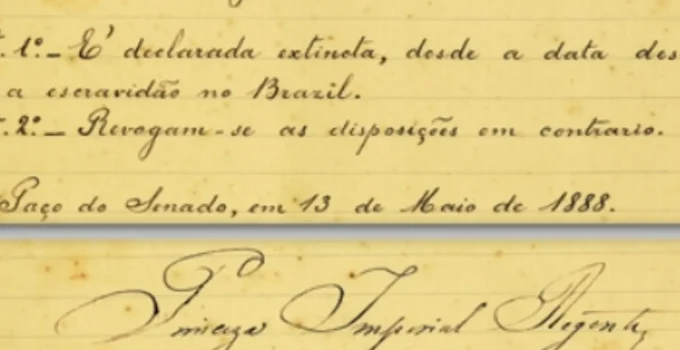 .1º_ E' declarada extincta, desde a data des
a escravidão no Brazil.
.2º_ Revogam-se as disposições em contrario.
Paço do Senado, em 13 de Maio de 1888.
Princeza Imperial Regente,